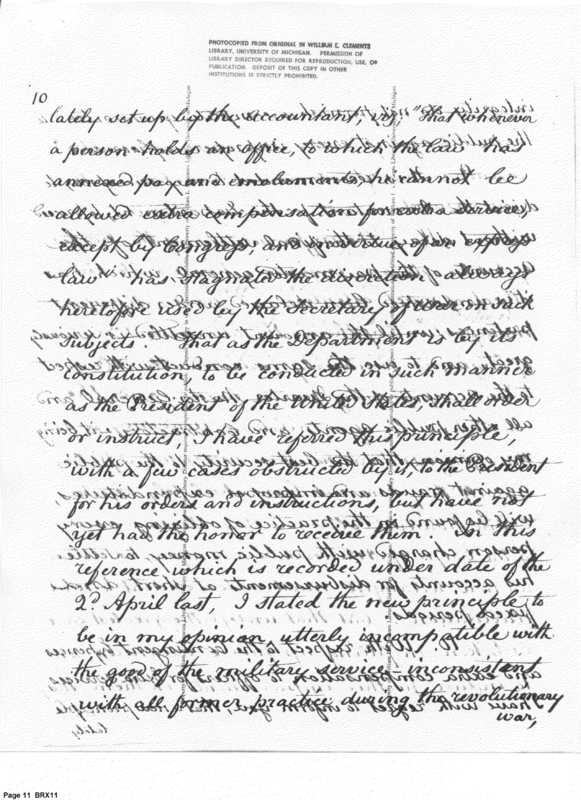 PHOTOCOPIED FROM ORIGINAL IN WILLIAM L. CLEMENTS
LIBRARY, UNIVERSITY OF MICHIGAN. PERMISSION OF
LIBRARY DIRECTOR REQUIRED FOR REPRODUCTION, USE, OR
PUBLICATION. DEPOSIT OF THIS COPY IN OTHER
INSTITUTIONS IS STRICTLY PROHIBITED.
10
lately set up by the accountant, viz, "That whenever
a person holds an office, to which the law has
annexed pay and emoluments he cannot be
allowed extra compensation for extra service,
except by Congress, and in virtue of an express
law" has stagnated the discretion
heretofore used by the Secretary of war on such
subjects. That as the Department is by its
constitution, to be conducted in such manner
as the President of the United States, shall order
or instruct, I have referred this principle,
with a few cases obstructed by it, to the President
for his orders and instructions, but have not
yet had the honor to receive them. In this
reference, which is recorded under date of the
2d April last, I stated the new principle to
be in my opinion utterly incompatible with
the good of the military service, inconsistent
with all former practice during the revolutionary
war,
Page 11 BRX11